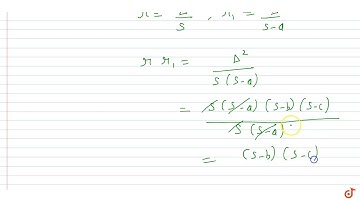 r = Δ/s , r₁ = Δ/s-a
r r₁ = Δ²/s(s-a)
= s(s-a)(s-b)(s-c)/s(s-a)
= (s-b)(s-c)